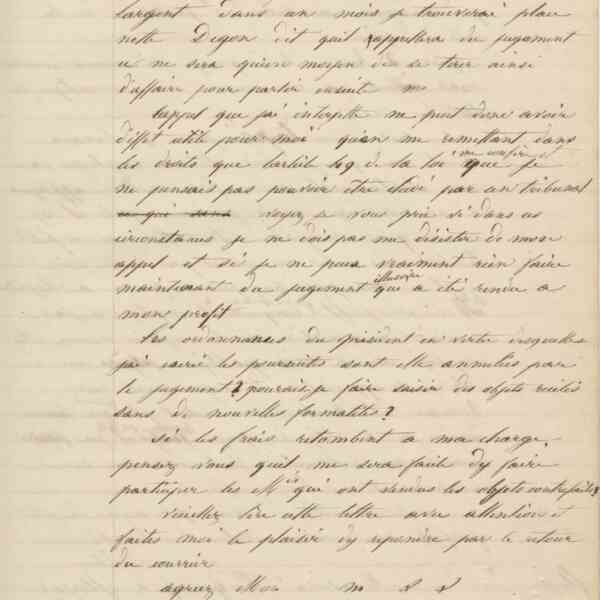 l'argent dans un mois je trouverai place
nette Degon dit quil rappellera du jugement
ce ne sera quun moyen de se tirer ainsi
d'affaire pour partir ensuite
l'appel que j'ai interjetté ne peut donc avoir
d'effet utile pour moi quen me remettant dans
les droits que larticle 49 de la loi me confire et que je
ne pensais pas pouvoir être élevé par un tribunal
ce qui sans voyez je vous prie si dans ces
circonstances je ne dois pas me désister de mon
appel et si je ne peux vraiment rien faire
maintenant du jugement illusoire qui a été rendu a
mon profit
Les ordonnances du président en vertu desquelles
j'ai exercé les poursuites sont elle annullées par
le jugement? pourais-je faire saisir des objets recelés
sans de nouvelles formalités?
si les frais retombent a ma charge,
pensez vous quil me sera facile dy faire
participer les Mds qui ont vendus les objets contrefaits?
veuillez lire cette lettre avec attention et
faites moi le plaisir dy repondre par le retour
du courrier
agreez Mon